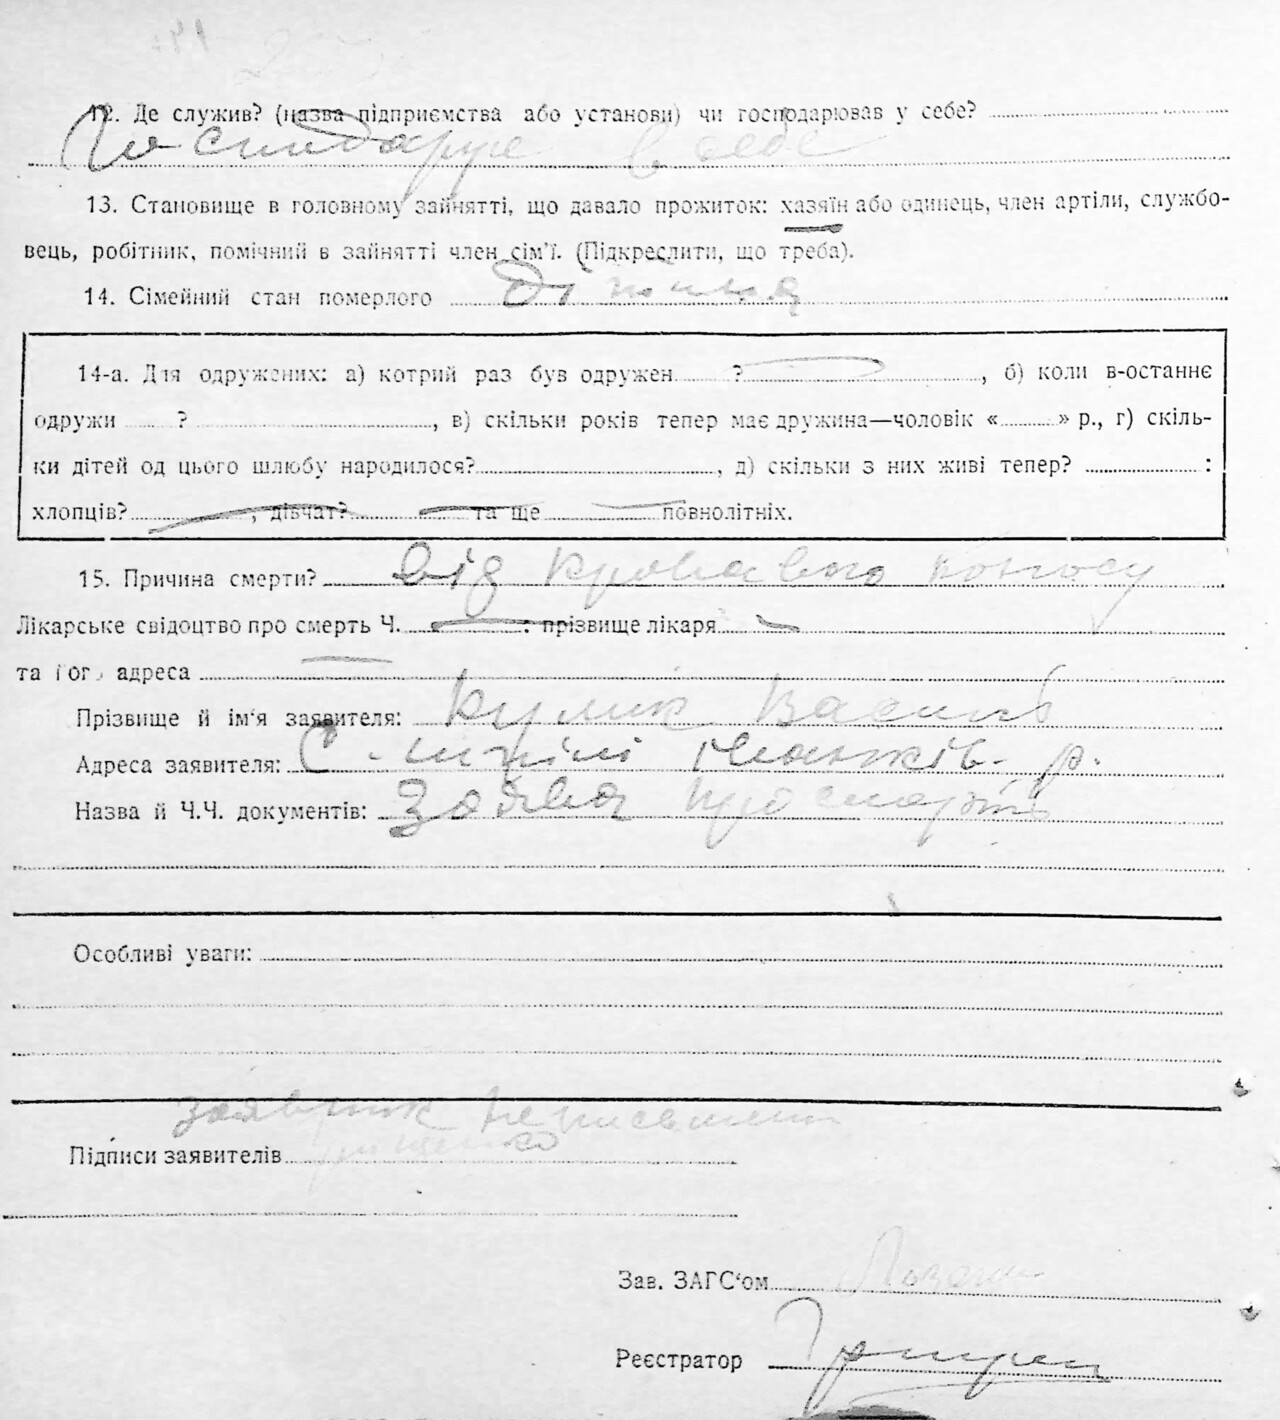 12. Де служив? (назва підприємства або установи) чи господарював у себе?
Господарує в себе
13. Становище в головному зайнятті, що давало прожиток: хазяїн або одинець, член артіли, службо-
вець, робітник, помічний в зайнятті член сім'ї. (Підкреслити, що треба).
14. Сімейний стан померлого
14-а. Для одружених: а) котрий раз був одружен ?, б) коли в-останнє
одружи ?, в) скільки років тепер має дружина—чоловік « » р., г) скіль-
ки дітей од цього шлюбу народилося?, д) скільки з них живі тепер? :
хлопців?, дівчат? та ще повнолітніх.
15. Причина смерти? Від кровавого поносу
Лікарське свідоцтво про смерть Ч. : прізвище лікаря
та його адреса
Прізвище й ім'я заявителя: Кулик Василь
Адреса заявителя: С. р.
Назва й Ч.Ч. документів: Заява про смерть
Особливі уваги:
заявник неписьмен
Підписи заявителів
Зав. ЗАГС'ом
Реєстратор